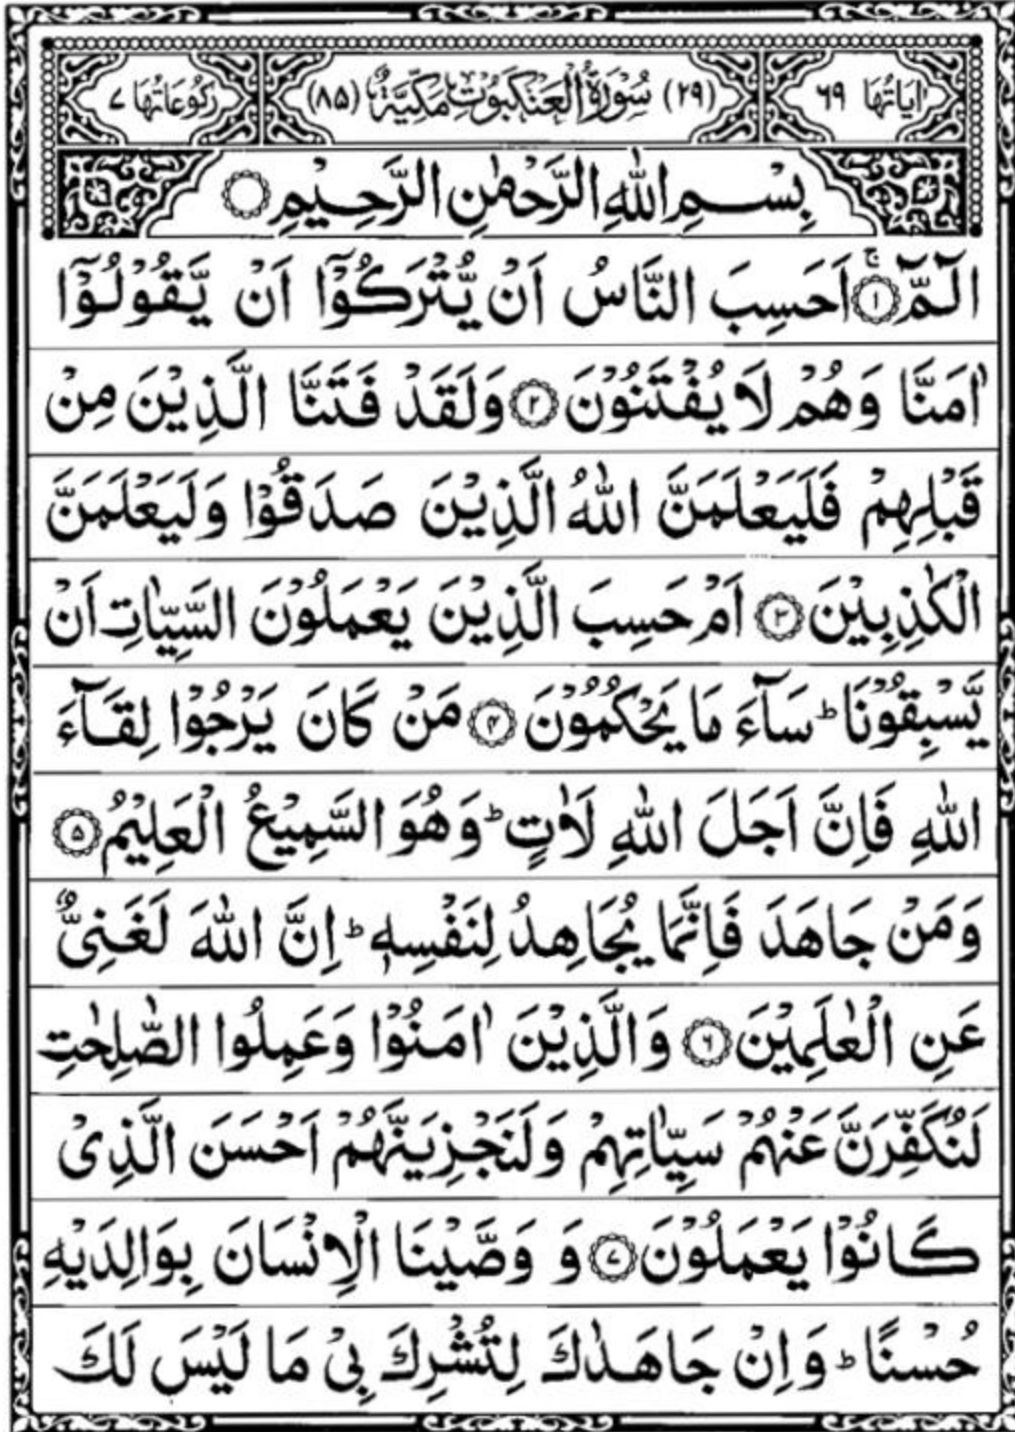 اٰيَاتُهَا ٦٩ (٢٩) سُوْرَةُ الْعَنْكَبُوْتِ مَكِّيَّةٌ (٨٥) رُكُوْعَاتُهَا ٧
بِسْمِ اللهِ الرَّحْمٰنِ الرَّحِيْمِ
الٓمّٓ ۚ﴿١﴾ اَحَسِبَ النَّاسُ اَنْ يُّتْرَكُوْۤا اَنْ يَّقُوْلُوْۤا
اٰمَنَّا وَهُمْ لَا يُفْتَنُوْنَ ﴿٢﴾ وَلَقَدْ فَتَنَّا الَّذِيْنَ مِنْ
قَبْلِهِمْ فَلَيَعْلَمَنَّ اللهُ الَّذِيْنَ صَدَقُوْا وَلَيَعْلَمَنَّ
الْكٰذِبِيْنَ ﴿٣﴾ اَمْ حَسِبَ الَّذِيْنَ يَعْمَلُوْنَ السَّيِّاٰتِ اَنْ
يَّسْبِقُوْنَا ؕ سَآءَ مَا يَحْكُمُوْنَ ﴿۴﴾ مَنْ كَانَ يَرْجُوْا لِقَآءَ
اللهِ فَاِنَّ اَجَلَ اللهِ لَاٰتٍ ؕ وَهُوَ السَّمِيْعُ الْعَلِيْمُ ﴿۵﴾
وَمَنْ جَاهَدَ فَاِنَّمَا يُجَاهِدُ لِنَفْسِهٖ ؕ اِنَّ اللهَ لَغَنِيٌّ
عَنِ الْعٰلَمِيْنَ ﴿۶﴾ وَالَّذِيْنَ اٰمَنُوْا وَعَمِلُوا الصّٰلِحٰتِ
لَنُكَفِّرَنَّ عَنْهُمْ سَيِّاٰتِهِمْ وَلَنَجْزِيَنَّهُمْ اَحْسَنَ الَّذِيْ
كَانُوْا يَعْمَلُوْنَ ﴿٧﴾ وَ وَصَّيْنَا الْاِنْسَانَ بِوَالِدَيْهِ
حُسْنًا ؕ وَ اِنْ جَاهَدٰكَ لِتُشْرِكَ بِيْ مَا لَيْسَ لَكَ